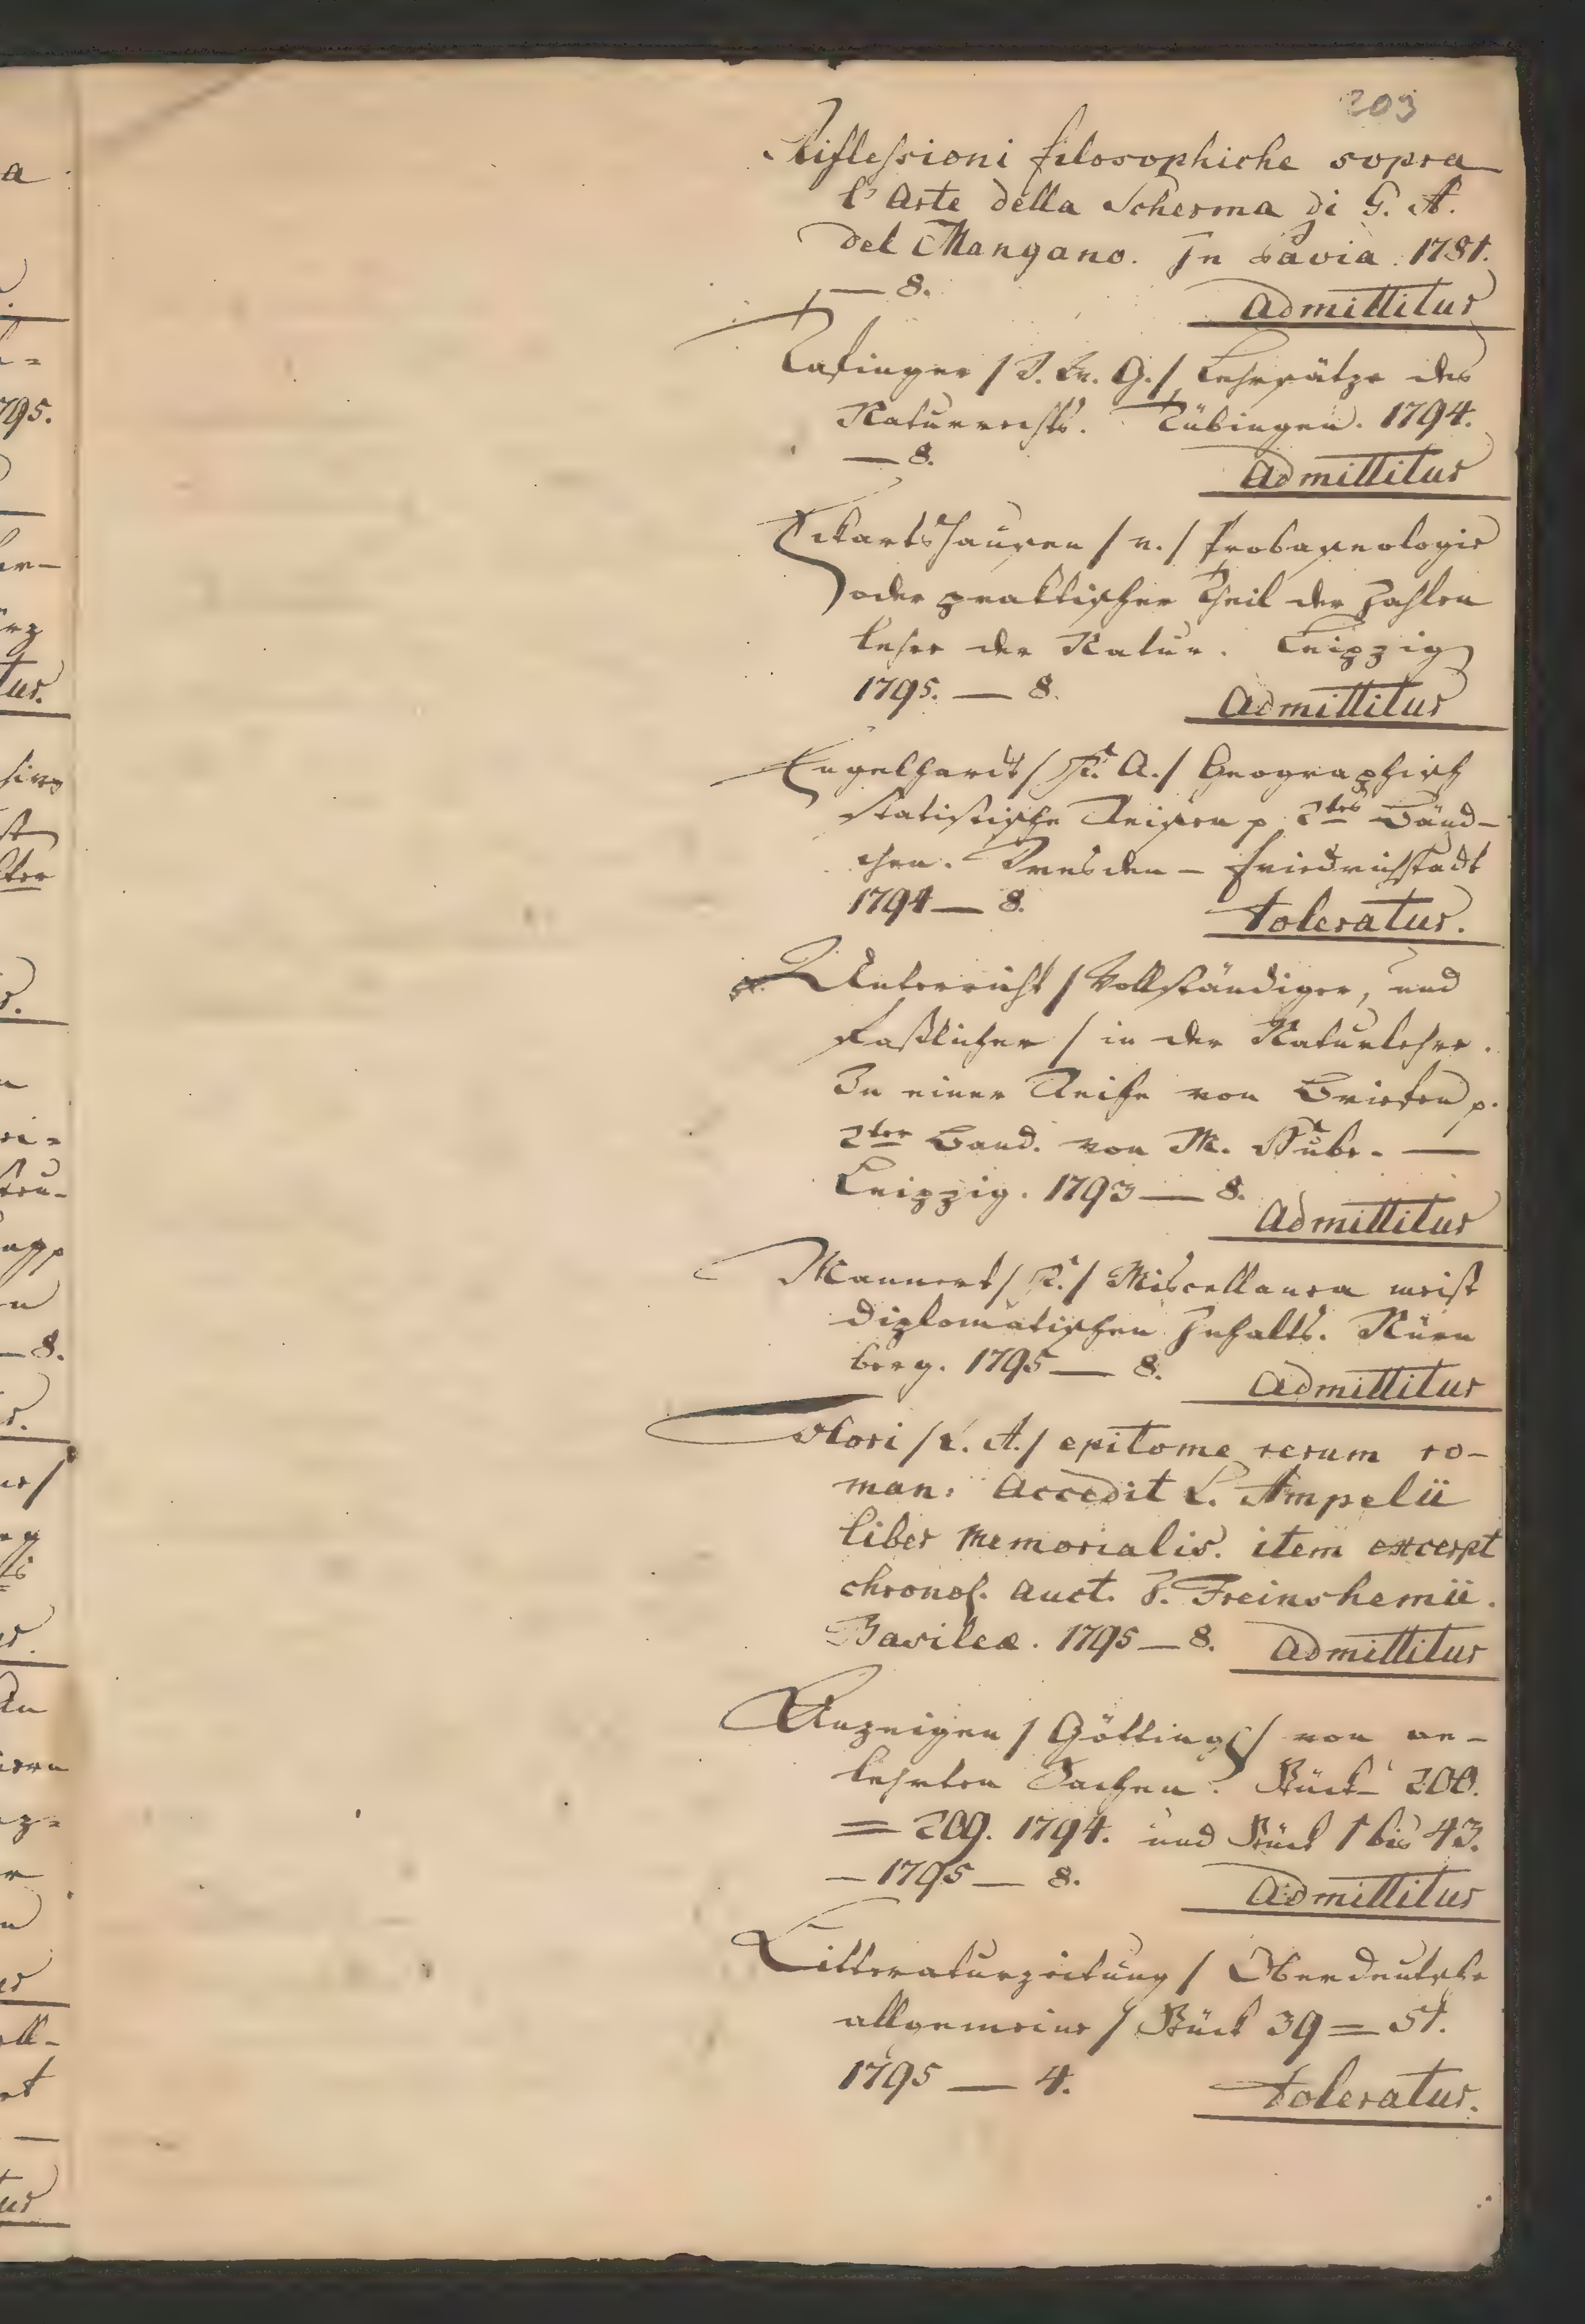 203
Riflessioni filosophiche sopra
l'Arte della Scherma di G. A.
del Mangano. In Pavia 1781.
— 8.
Admittitur
Tafinger / W. G. / Lehrsätze des
Naturrechts. Tübingen. 1794.
— 8.
Admittitur
Eckartshausen / v. / Probaseologie
oder praktischer Theil der Zahlen
lehre der Natur. Leipzig
1795. — 8.
Admittitur
Engelhardt / K. A. / Geographisch
statistische Reisen p. 2tes Bänd-
chen. Dresden – Friedrichstadt
1794 — 8.
toleratur.
Unterricht / Vollständiger, und
faßlicher / in der Naturlehre.
In einer Reihe von Briefen p.
2ter Band. von M. Hube. —
Leipzig. 1793 — 8.
Admittitur
Mannert / K. / Miscellanea meist
diplomatischen Inhalts. Nürn
berg. 1795 — 8.
Admittitur
Flori / L. A. / epitome rerum ro-
man: Accedit L. Ampelii
liber memorialis. item excerpt
chronol. auct. J. Freinshemii.
Basileæ. 1795 — 8. Admittitur
Anzeigen / Götting / von ge-
lehrten Sachen. Stück 200.
= 209. 1794. und Stück 1 bis 43.
– 1795 — 8.
Admittitur
Litteraturzeitung / Oberdeutsche
allgemeine / Stück 39 = 51.
1795 — 4.
toleratur.